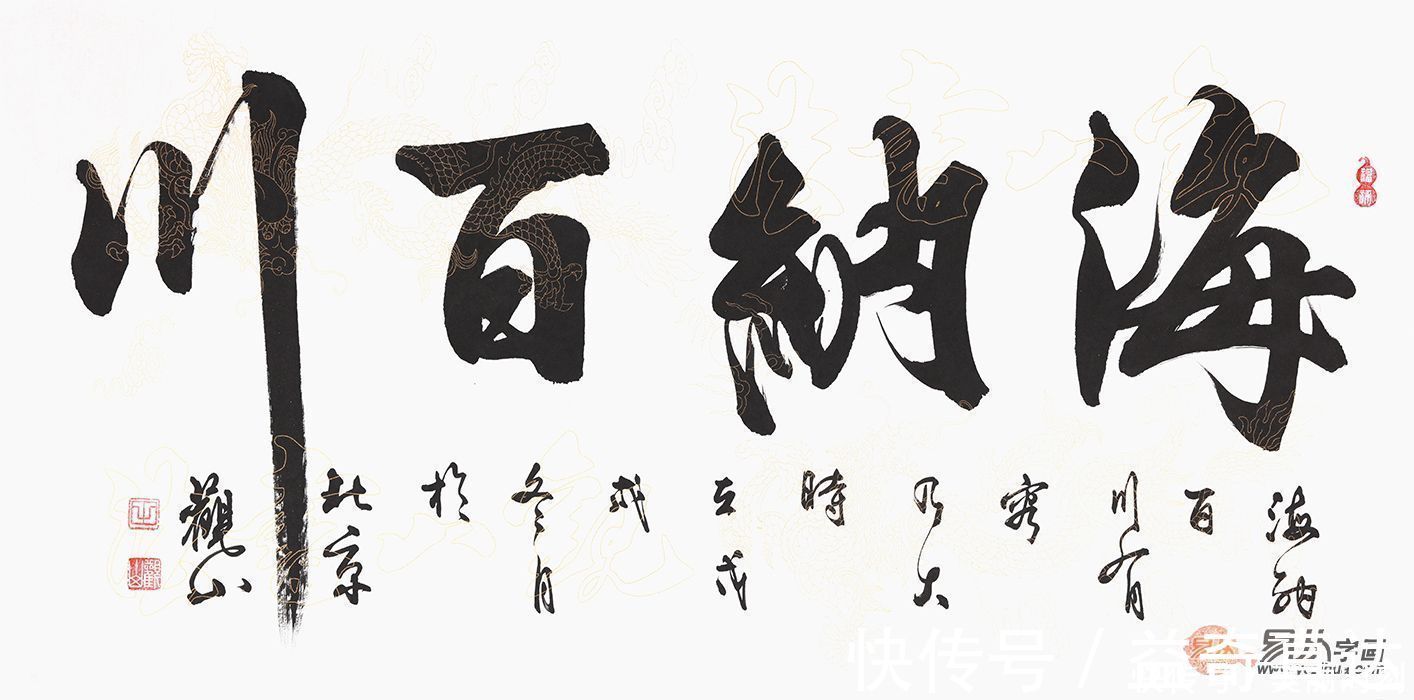 海納百川
海納
百
川有
容
乃大
時
在戊
戌
冬月
於
北京
觀山
快传号 / 益
易从字画